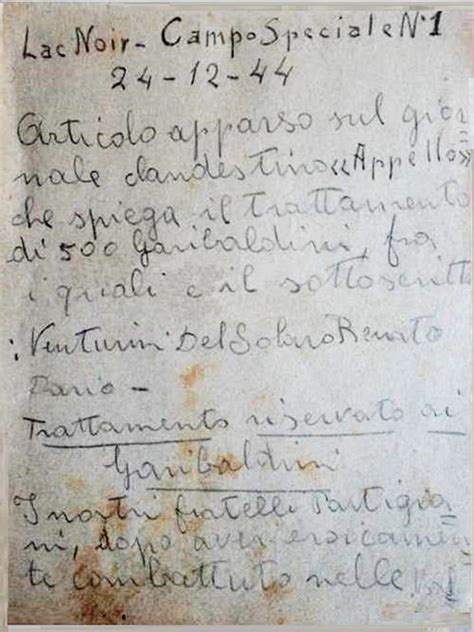 Lac Noir - Campo Speciale N°1
24-12-44
Articolo apparso sul gior=
nale clandestino «Appello»
che spiega il trattamento
di 500 Garibaldini, fra
i quali e il sottoscritt
Venturini Del Solaro Renato
Dario -
Trattamento riservato ai
Garibaldini
I nostri fratelli Partigia=
ni, dopo aver eroicamen=
te combattuto nelle